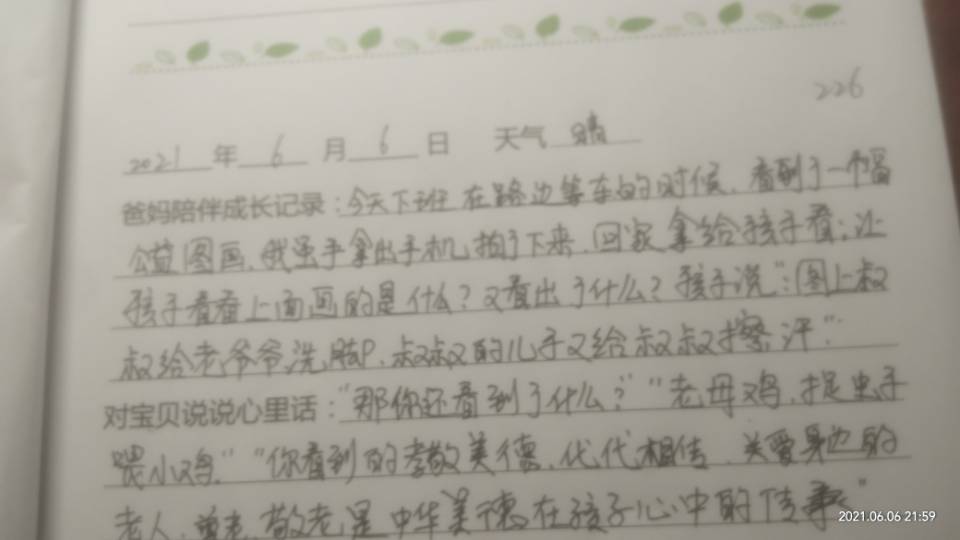 226
2021年6月6日 天气 晴
爸妈陪伴成长记录:今天下班在路边等车的时候,看到了一幅
公益图画,我顺手拿出手机拍了下来,回家拿给孩子看;让
孩子看看上面画的是什么?又看出了什么?孩子说“:图上叔
叔给老爷爷洗脚,叔叔的儿子又给叔叔擦汗”.
对宝贝说说心里话:“那你还看到了什么?”“老母鸡,捉虫子
喂小鸡.”“你看到的孝敬美德,代代相传,关爱身边的
老人,敬老是中华美德在孩子心中的传承”
2021.06.06 21:59